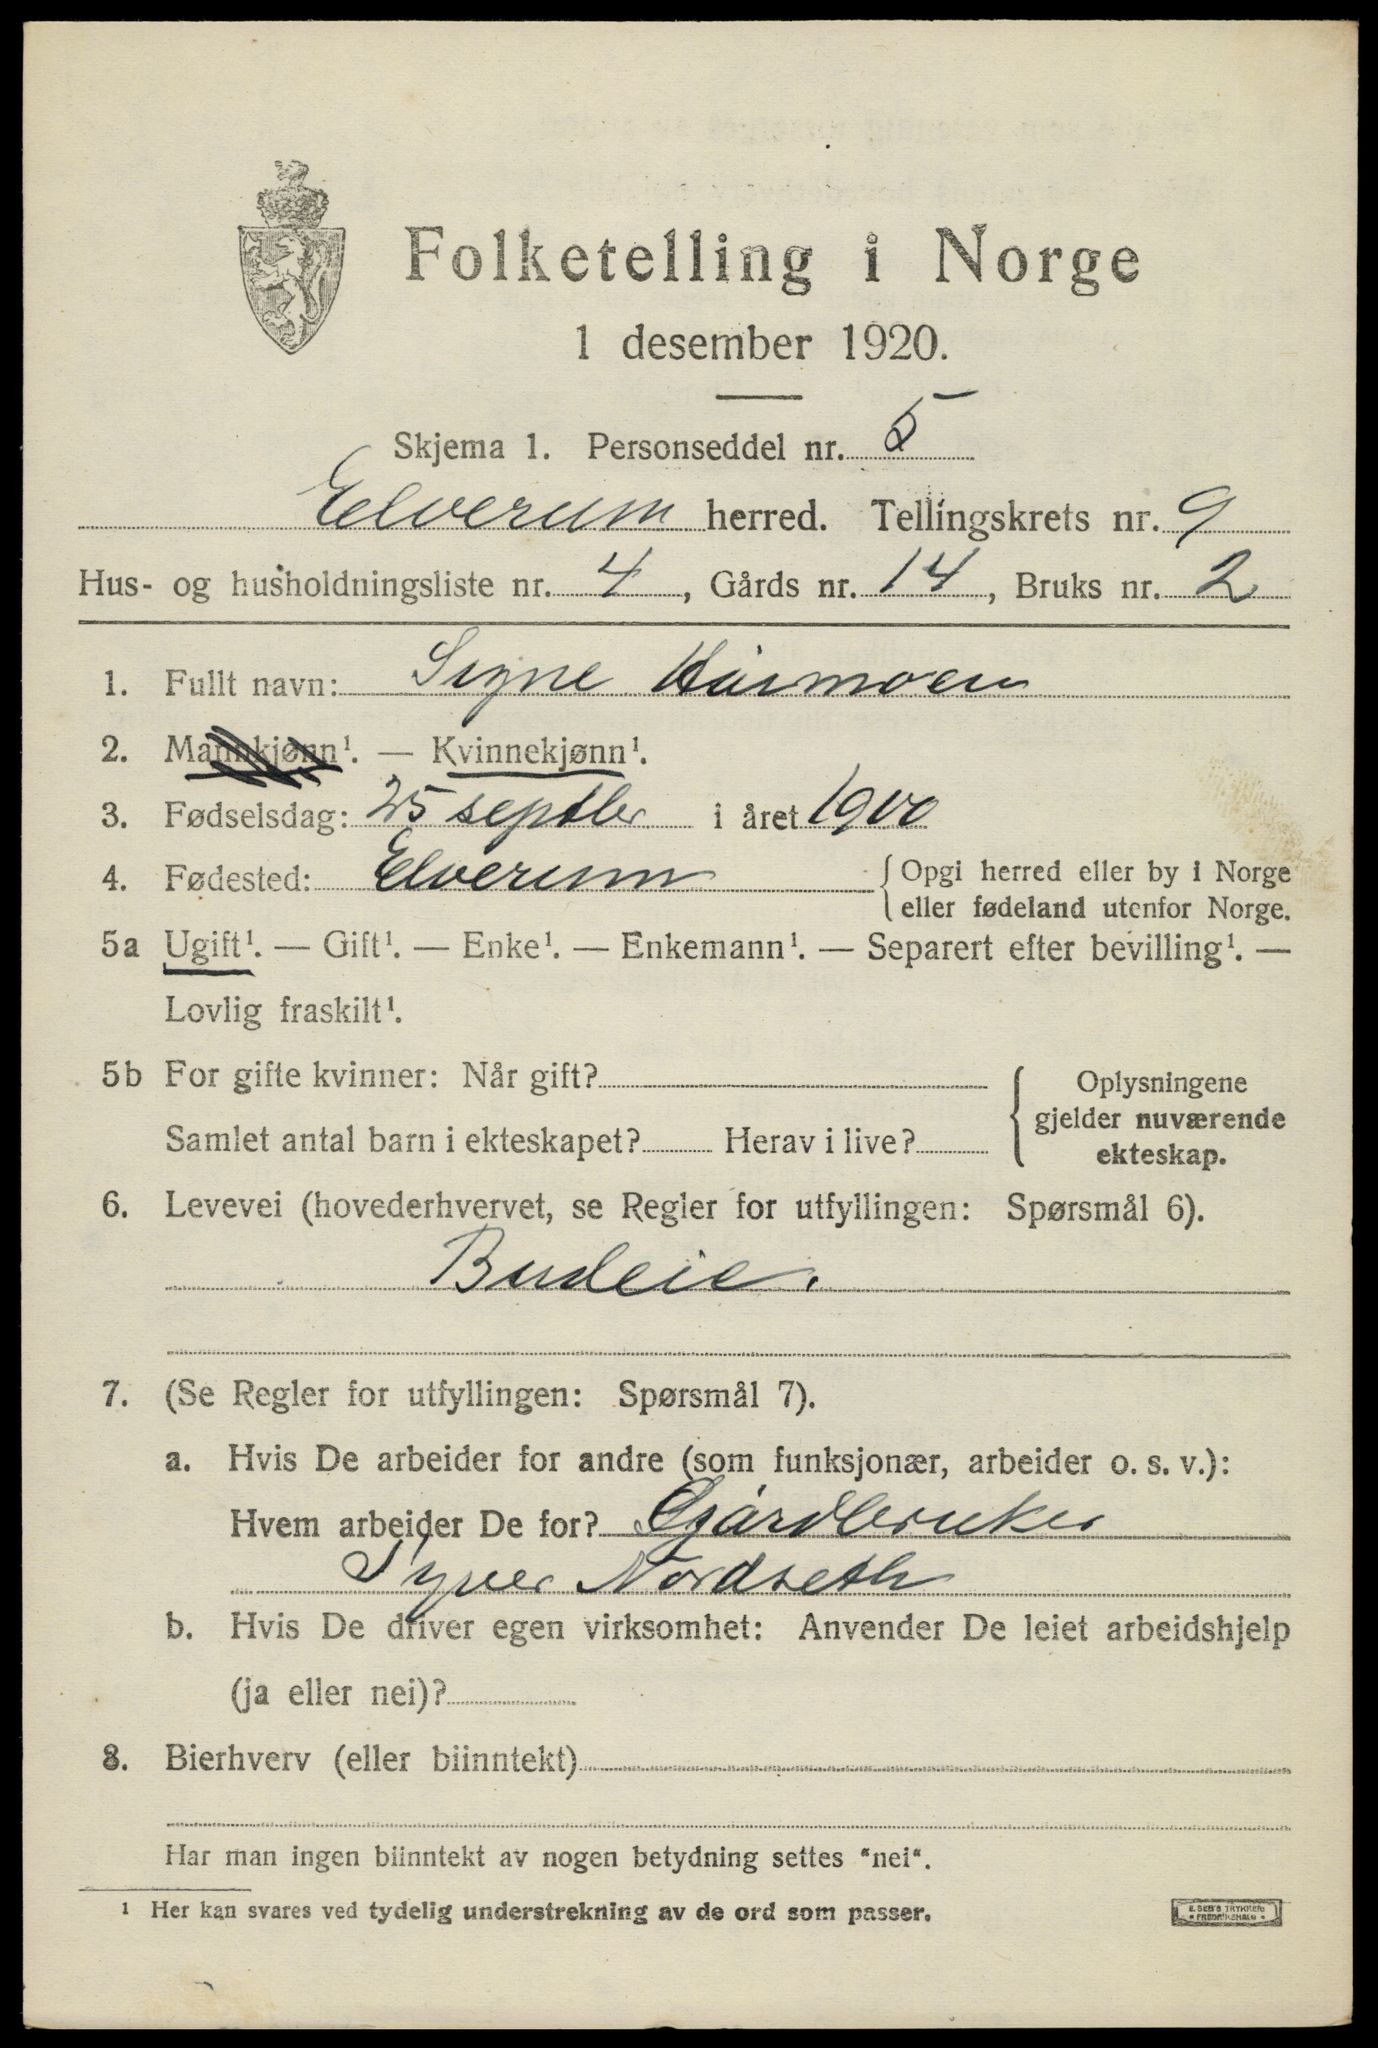 Folketelling i Norge
1 desember 1920.
Skjema 1. Personseddel nr. 5
Elverum herred. Tellingskrets nr. 9
Hus- og husholdningsliste nr. 4, Gårds nr. 14, Bruks nr. 2
1. Fullt navn: Signe
2. Mannkjønn¹. — Kvinnekjønn¹.
3. Fødselsdag: 25 septbr i året 1900
4. Fødested: Elverum { Opgi herred eller by i Norge
eller fødeland utenfor Norge.
5a Ugift¹. — Gift¹. — Enke¹. — Enkemann¹. — Separert efter bevilling¹. —
Lovlig fraskilt¹.
5b For gifte kvinner: Når gift?
Samlet antal barn i ekteskapet? Herav i live?
{ Oplysningene
gjelder nuværende
ekteskap.
6. Levevei (hovederhvervet, se Regler for utfyllingen: Spørsmål 6).
Budeie.
7. (Se Regler for utfyllingen: Spørsmål 7).
a. Hvis De arbeider for andre (som funksjonær, arbeider o. s. v.):
Hvem arbeider De for? Gjårdbruker
Syver Nordseth
b. Hvis De driver egen virksomhet: Anvender De leiet arbeidshjelp
(ja eller nei)?
8. Bierhverv (eller biinntekt)
Har man ingen biinntekt av nogen betydning settes "nei".
¹ Her kan svares ved tydelig understrekning av de ord som passer.
E. SEM'S TRYKKERI
• FREDRIKSHALD •